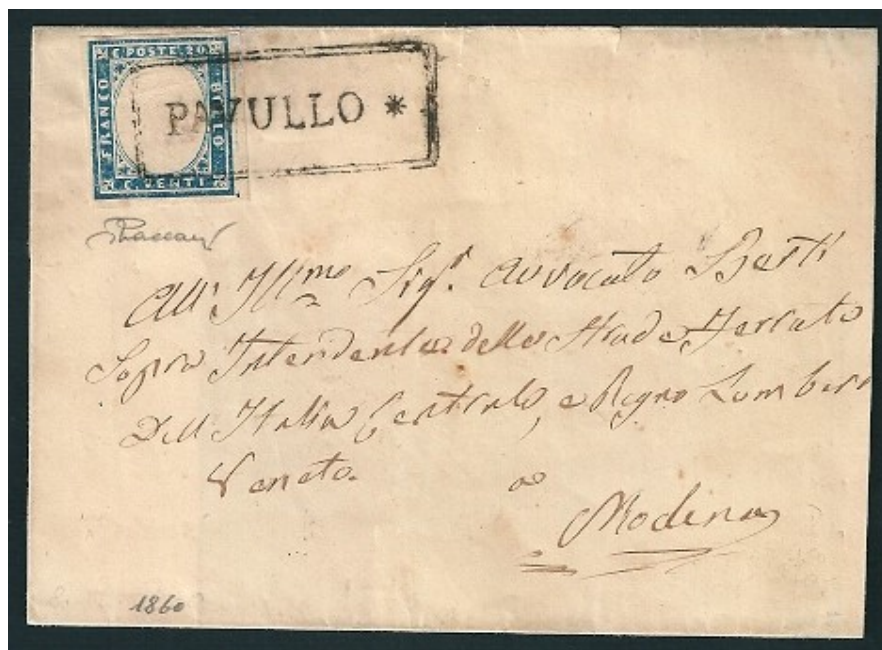 C. POSTE. 20
FRANCO
BOLLO
C. VENTI
PAVULLO *
All' Ill.mo Sig.r Avvocato
Sopra Intendente delle Strade Ferrate
Dell Italia Centrale, e Regno Lombar
Veneto.
a
Modena
1860